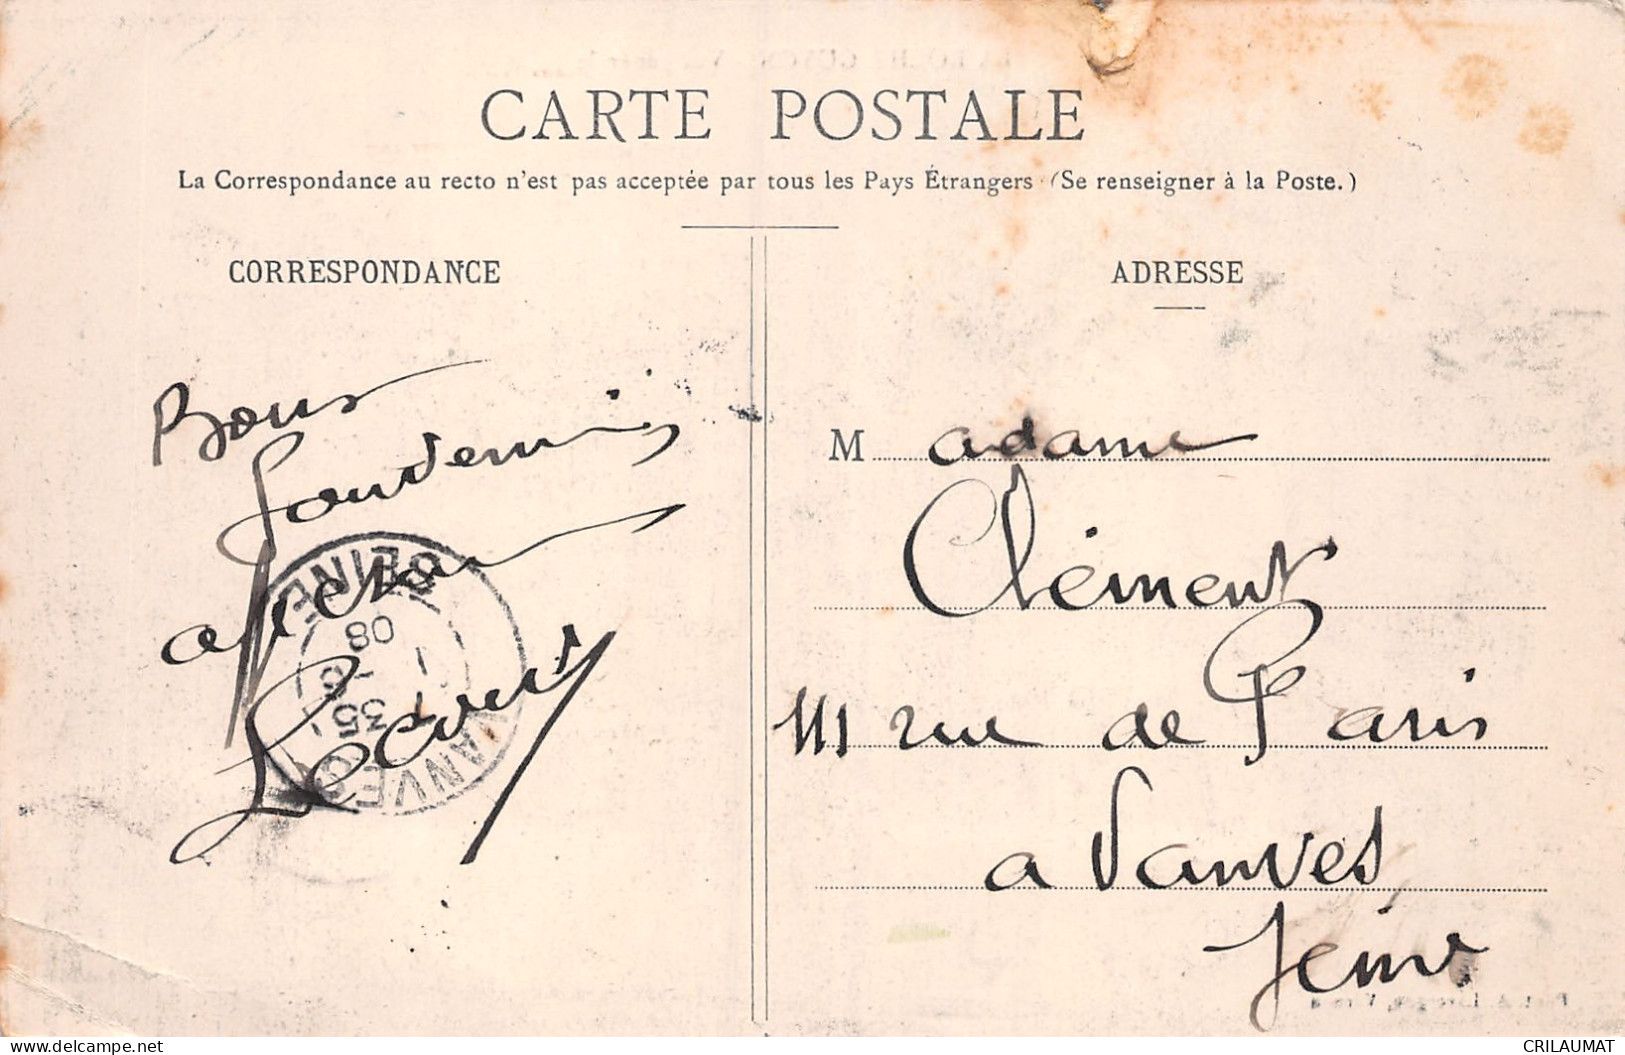 CARTE POSTALE
La Correspondance au recto n'est pas acceptée par tous les Pays Étrangers (Se renseigner à la Poste.)
CORRESPONDANCE
Bons
Souvenirs
SEINE
08
35
VANVES
ADRESSE
M adame
Clément
111 rue de Paris
a Vanves
Seine
www.delcampe.net
CRILAUMAT